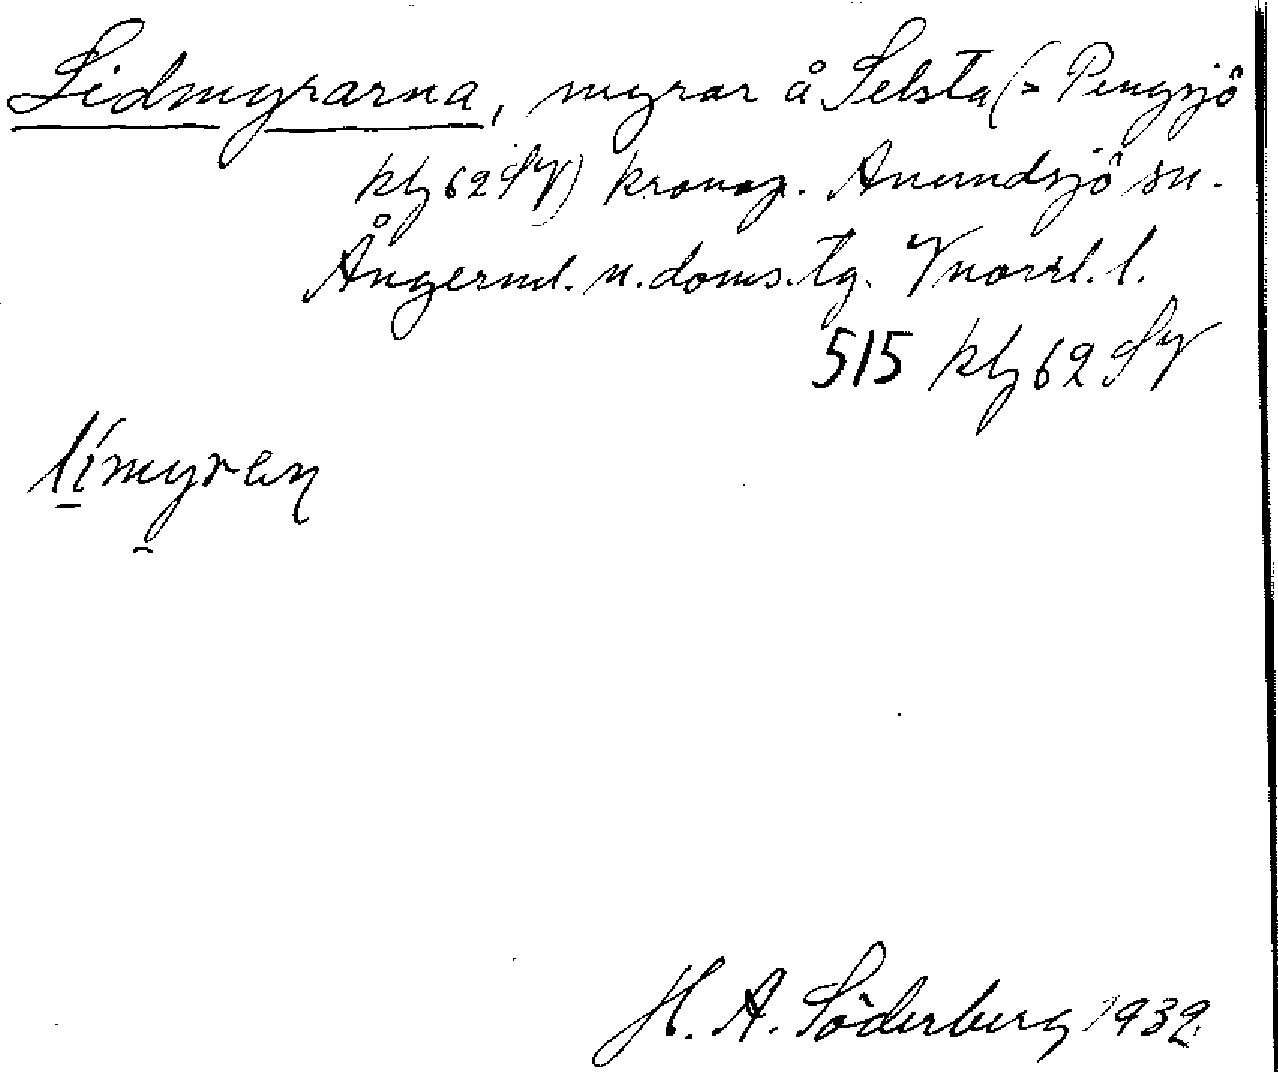 Lidmyrarna, myrar å Selsta (= Pengsjö
kbg 62 SV) kronop. Anundsjö sn.
Ångerml. n. doms. tg. Vnorrl. l.
515 kbg 62 SV
límyren
H. A. Söderberg 1932